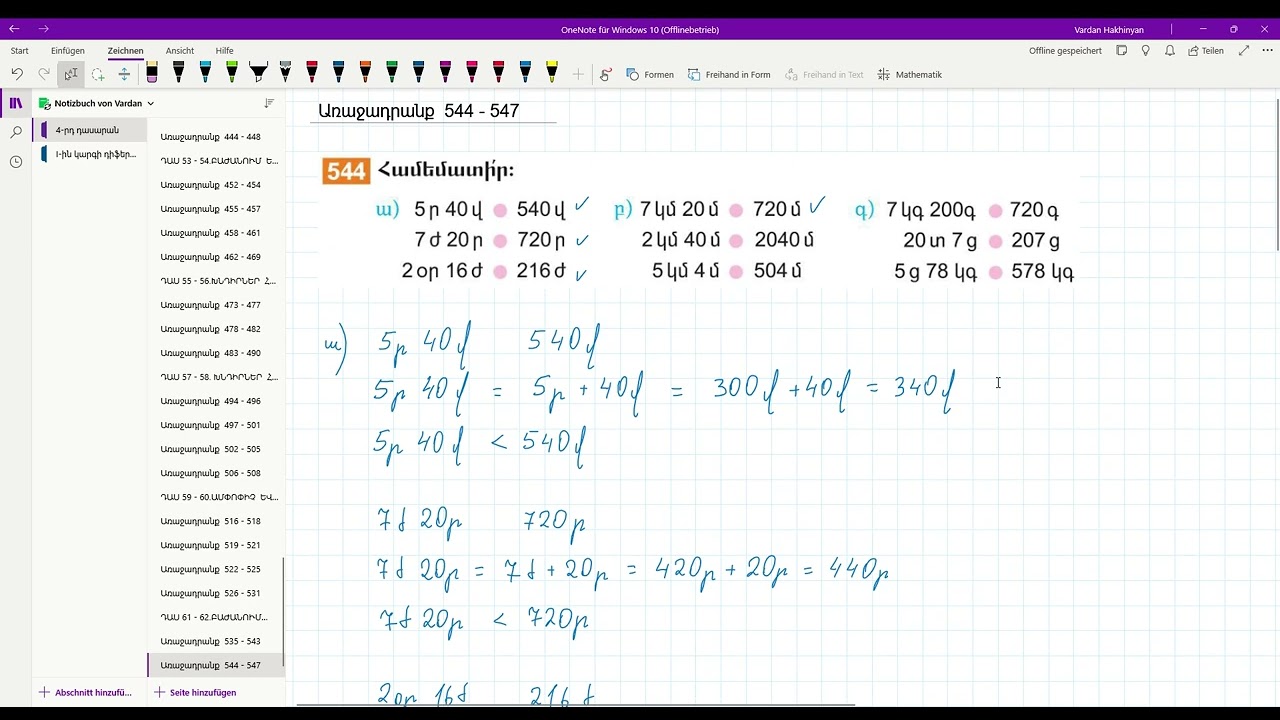 OneNote für Windows 10 (Offlinebetrieb)
Vardan Hakhinyan
Start Einfügen Zeichnen Ansicht Hilfe
Offline gespeichert Teilen
Formen Freihand in Form Freihand in Text Mathematik
Notizbuch von Vardan
4-րդ դասարան
I-ին կարգի դիֆեր...
Առաջադրանք 444 - 448
ԴԱՍ 53 - 54.ԲԱԺԱՆՈՒՄ Ե...
Առաջադրանք 452 - 454
Առաջադրանք 455 - 457
Առաջադրանք 458 - 461
Առաջադրանք 462 - 469
ԴԱՍ 55 - 56.ԽՆԴԻՐՆԵՐ Հ...
Առաջադրանք 473 - 477
Առաջադրանք 478 - 482
Առաջադրանք 483 - 490
ԴԱՍ 57 - 58. ԽՆԴԻՐՆԵՐ Հ...
Առաջադրանք 494 - 496
Առաջադրանք 497 - 501
Առաջադրանք 502 - 505
Առաջադրանք 506 - 508
ԴԱՍ 59 - 60.ԱՄՓՈՓԻՉ ԵՎ...
Առաջադրանք 516 - 518
Առաջադրանք 519 - 521
Առաջադրանք 522 - 525
Առաջադրանք 526 - 531
ԴԱՍ 61 - 62.ԲԱԺԱՆՈՒՄ...
Առաջադրանք 535 - 543
Առաջադրանք 544 - 547
Abschnitt hinzufü...
Seite hinzufügen
Առաջադրանք 544 - 547
544 Համեմատի՛ր:
ա) 5 ր 40 վ 540 վ բ) 7 կմ 20 մ 720 մ գ) 7 կգ 200գ 720 գ
7 ժ 20 ր 720 ր 2 կմ 40 մ 2040 մ 20 տ 7 ց 207 ց
2 օր 16 ժ 216 ժ 5 կմ 4 մ 504 մ 5 ց 78 կգ 578 կգ
ա) 5ր 40վ 540վ
5ր 40վ = 5ր + 40վ = 300վ + 40վ = 340վ
5ր 40վ < 540վ
7ժ 20ր 720ր
7ժ 20ր = 7ժ + 20ր = 420ր + 20ր = 440ր
7ժ 20ր < 720ր
2օր 16ժ 216 ժ